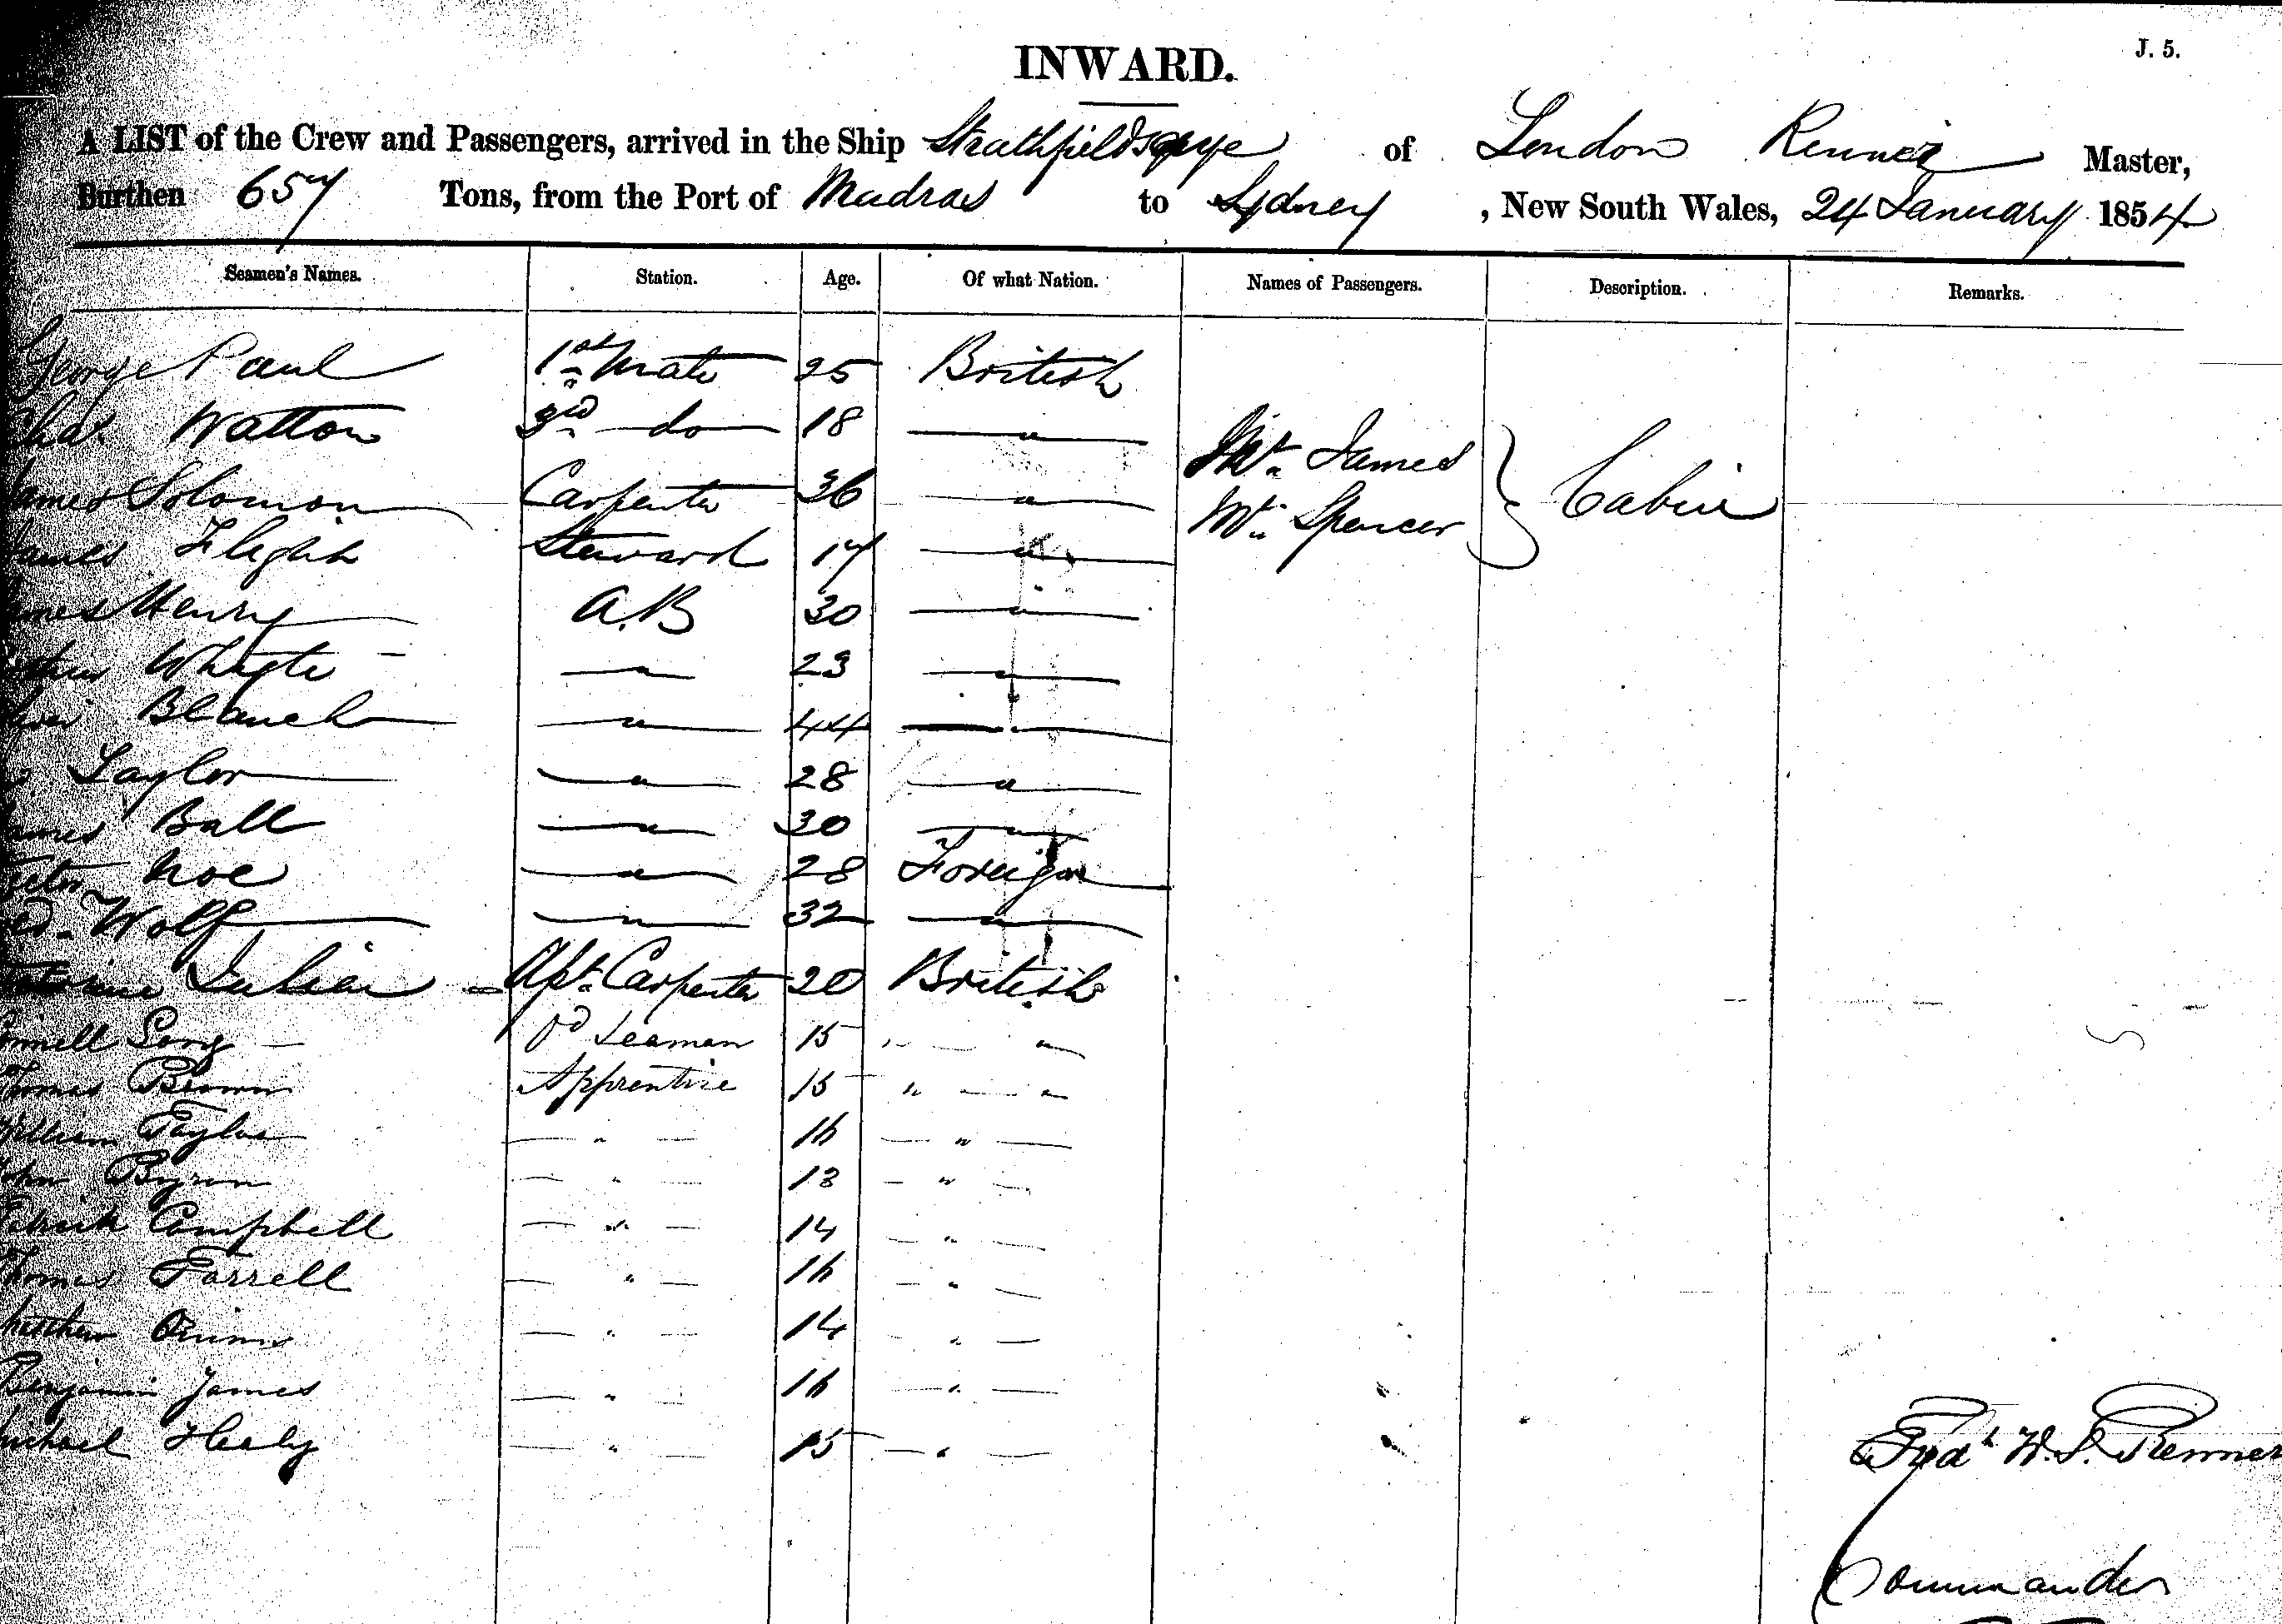 INWARD.
J. 5.
A LIST of the Crew and Passengers, arrived in the Ship Strathfieldsaye of London Renner Master,
Burthen 657 Tons, from the Port of Madras to Sydney, New South Wales, 24 January 1854.
Seamen's Names. Station. Age. Of what Nation. Names of Passengers. Description. Remarks.
George Paul 1st Mate 25 British
Chas. Watton 3rd do 18 — " —
James Solomon Carpenter 36 — " — Mr. James
James Flight Steward 17 — " — Mr. Spencer } Cabin
James Henry A.B 30 — " —
Whyte — " — 23 — " —
Blanch — " — 44 — " —
Taylor — " — 28 — " —
James Ball — " — 30 — " —
Noe — " — 28 Foreign
Wolff — " — 32 — " —
Julian Apt. Carpenter 20 British
Od Seaman 15 " — "
Thomas Brown Apprentice 15 " — "
William Taylor — " — 16 — " —
John Byron — " — 13 — " —
Patrick Campbell — " — 14 — " —
Thomas Farrell — " — 16 — " —
— " — 14 — " —
Benjamin James — " — 16 — " —
Michael Healy — " — 15 — " —
Fredk W. S. Renner
Commander